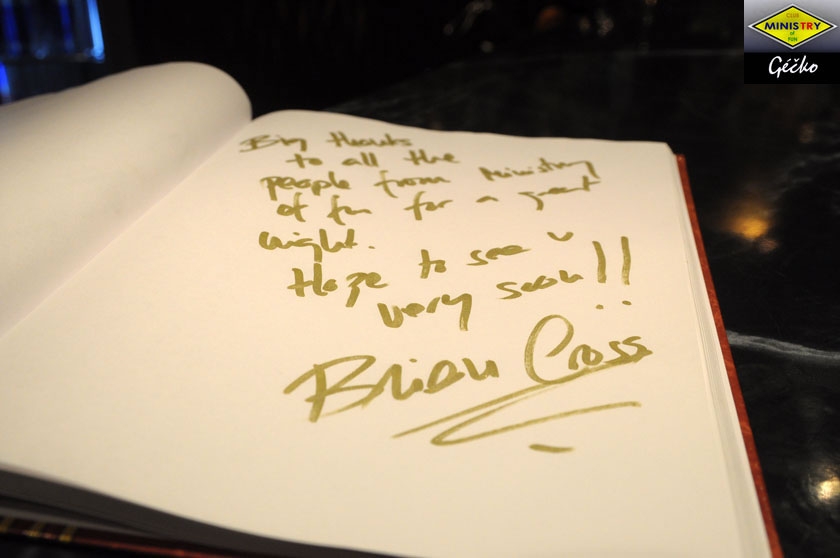 CLUB
MINISTRY
of
FUN
Géčko
Big thanks
to all the
people from Ministry
of fun for a great
night.
Hope to see u
very soon!!
Brian Cross